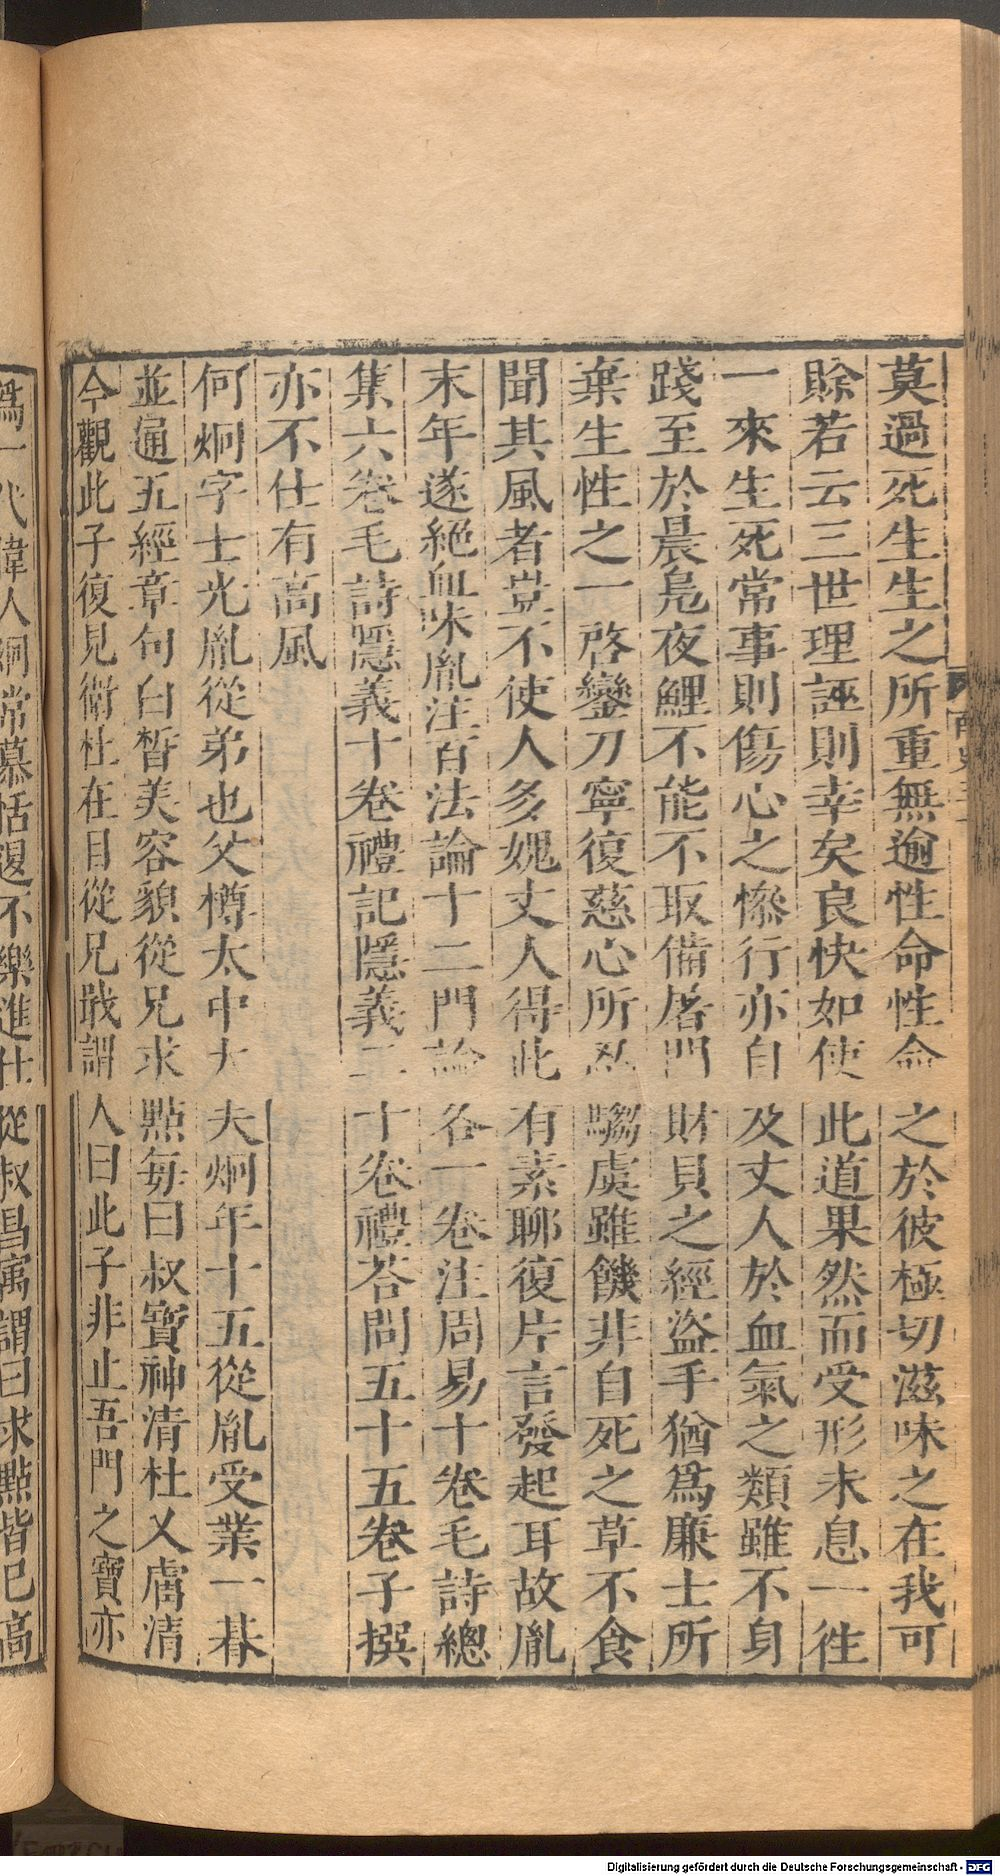 莫過死生生之所重無逾性命性命之於彼極切滋味之在我可
賖若云三世理誣則幸矣良快如使此道果然而受形未息一徃
一來生死常事則傷心之慘行亦自及丈人於血氣之類雖不身
踐至於晨鳬夜鯉不能不取備屠門財貝之經盗手猶爲廉士所
棄生性之一啓鑾刀寧復慈心所忍騶虞雖饑非自死之草不食
聞其風者豈不使人多媿丈人得此有素聊復片言發起耳故胤
末年遂絕血味胤注百法論十二門論各一卷注周易十卷毛詩總
集六卷毛詩隱義十卷禮記隱義二十卷禮荅問五十五卷子撰
亦不仕有高風
何炯字士光胤從弟也父樽太中大夫炯年十五從胤受業一朞
並通五經章句白晳美容貌從兄求點每曰叔寶神清杜乂膚清
今觀此子復見衛杜在目從兄戢謂人曰此子非止吾門之寶亦
爲一代偉人炯常慕恬退不樂進仕從叔昌㝢謂曰求點皆已高
Digitalisierung gefördert durch die Deutsche Forschungsgemeinschaft - DFG